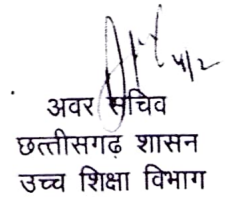 4/2
अवर सचिव
छत्तीसगढ़ शासन
उच्च शिक्षा विभाग